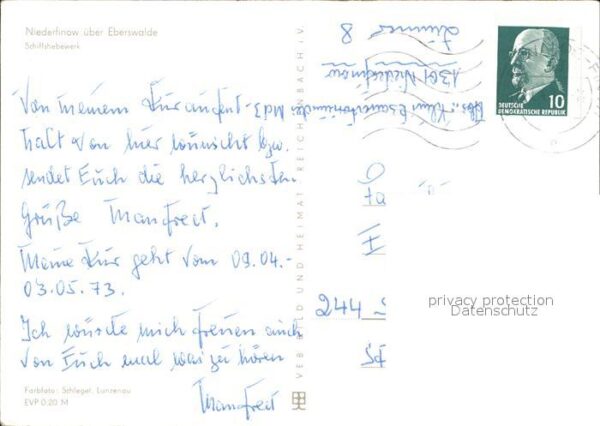 Niederfinow über Eberswalde
Schiffshebewerk
Von meinem Kuraufent-
halt von hier wünscht bzw.
sendet Euch die herzlichsten
Grüße Manfred.
Meine Kur geht vom 09.04.-
03.05.73.
Ich würde mich freuen auch
von Euch mal was zu hören
Manfred
Farbfoto: Schlegel, Lunzenau
EVP 0.20 M
VEB BILD UND HEIMAT REICHENBACH i. V.
Abs.:
1301 Niederfinow
Zimmer
8
DEUTSCHE
DEMOKRATISCHE REPUBLIK
10
244
privacy protection
Datenschutz